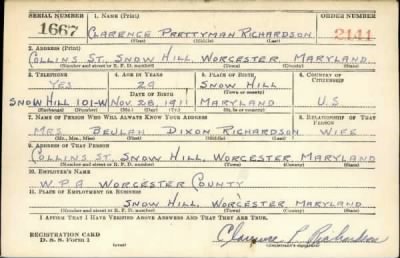 SERIAL NUMBER 1. NAME (Print) ORDER NUMBER
1667 CLARENCE PRETTYMAN RICHARDSON 2141
(First) (Middle) (Last)
2. ADDRESS (Print)
COLLINS ST., SNOW HILL, WORCESTER, MARYLAND
(Number and street or R. F. D. number) (Town) (County) (State)
3. TELEPHONE 4. AGE IN YEARS 5. PLACE OF BIRTH 6. COUNTRY OF CITIZENSHIP
YES 29 SNOW HILL
DATE OF BIRTH (Town or county)
SNOW HILL 101-W NOV. 28, 1911 MARYLAND U S
(Exchange) (Number) (Mo.) (Day) (Yr.) (State or country)
7. NAME OF PERSON WHO WILL ALWAYS KNOW YOUR ADDRESS 8. RELATIONSHIP OF THAT PERSON
MRS. BEULAH DIXON RICHARDSON WIFE
(Mr., Mrs., Miss) (First) (Middle) (Last)
9. ADDRESS OF THAT PERSON
COLLINS ST., SNOW HILL, WORCESTER MARYLAND
(Number and street or R. F. D. number) (Town) (County) (State)
10. EMPLOYER'S NAME
W.P.A. WORCESTER COUNTY
11. PLACE OF EMPLOYMENT OR BUSINESS
SNOW HILL, WORCESTER, MARYLAND
(Number and street or R. F. D. number) (Town) (County) (State)
I AFFIRM THAT I HAVE VERIFIED ABOVE ANSWERS AND THAT THEY ARE TRUE.
REGISTRATION CARD
D. S. S. Form 1 Clarence P. Richardson
(Registrant's signature)